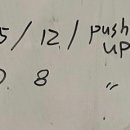 5 / 12 / push up
0 8 "